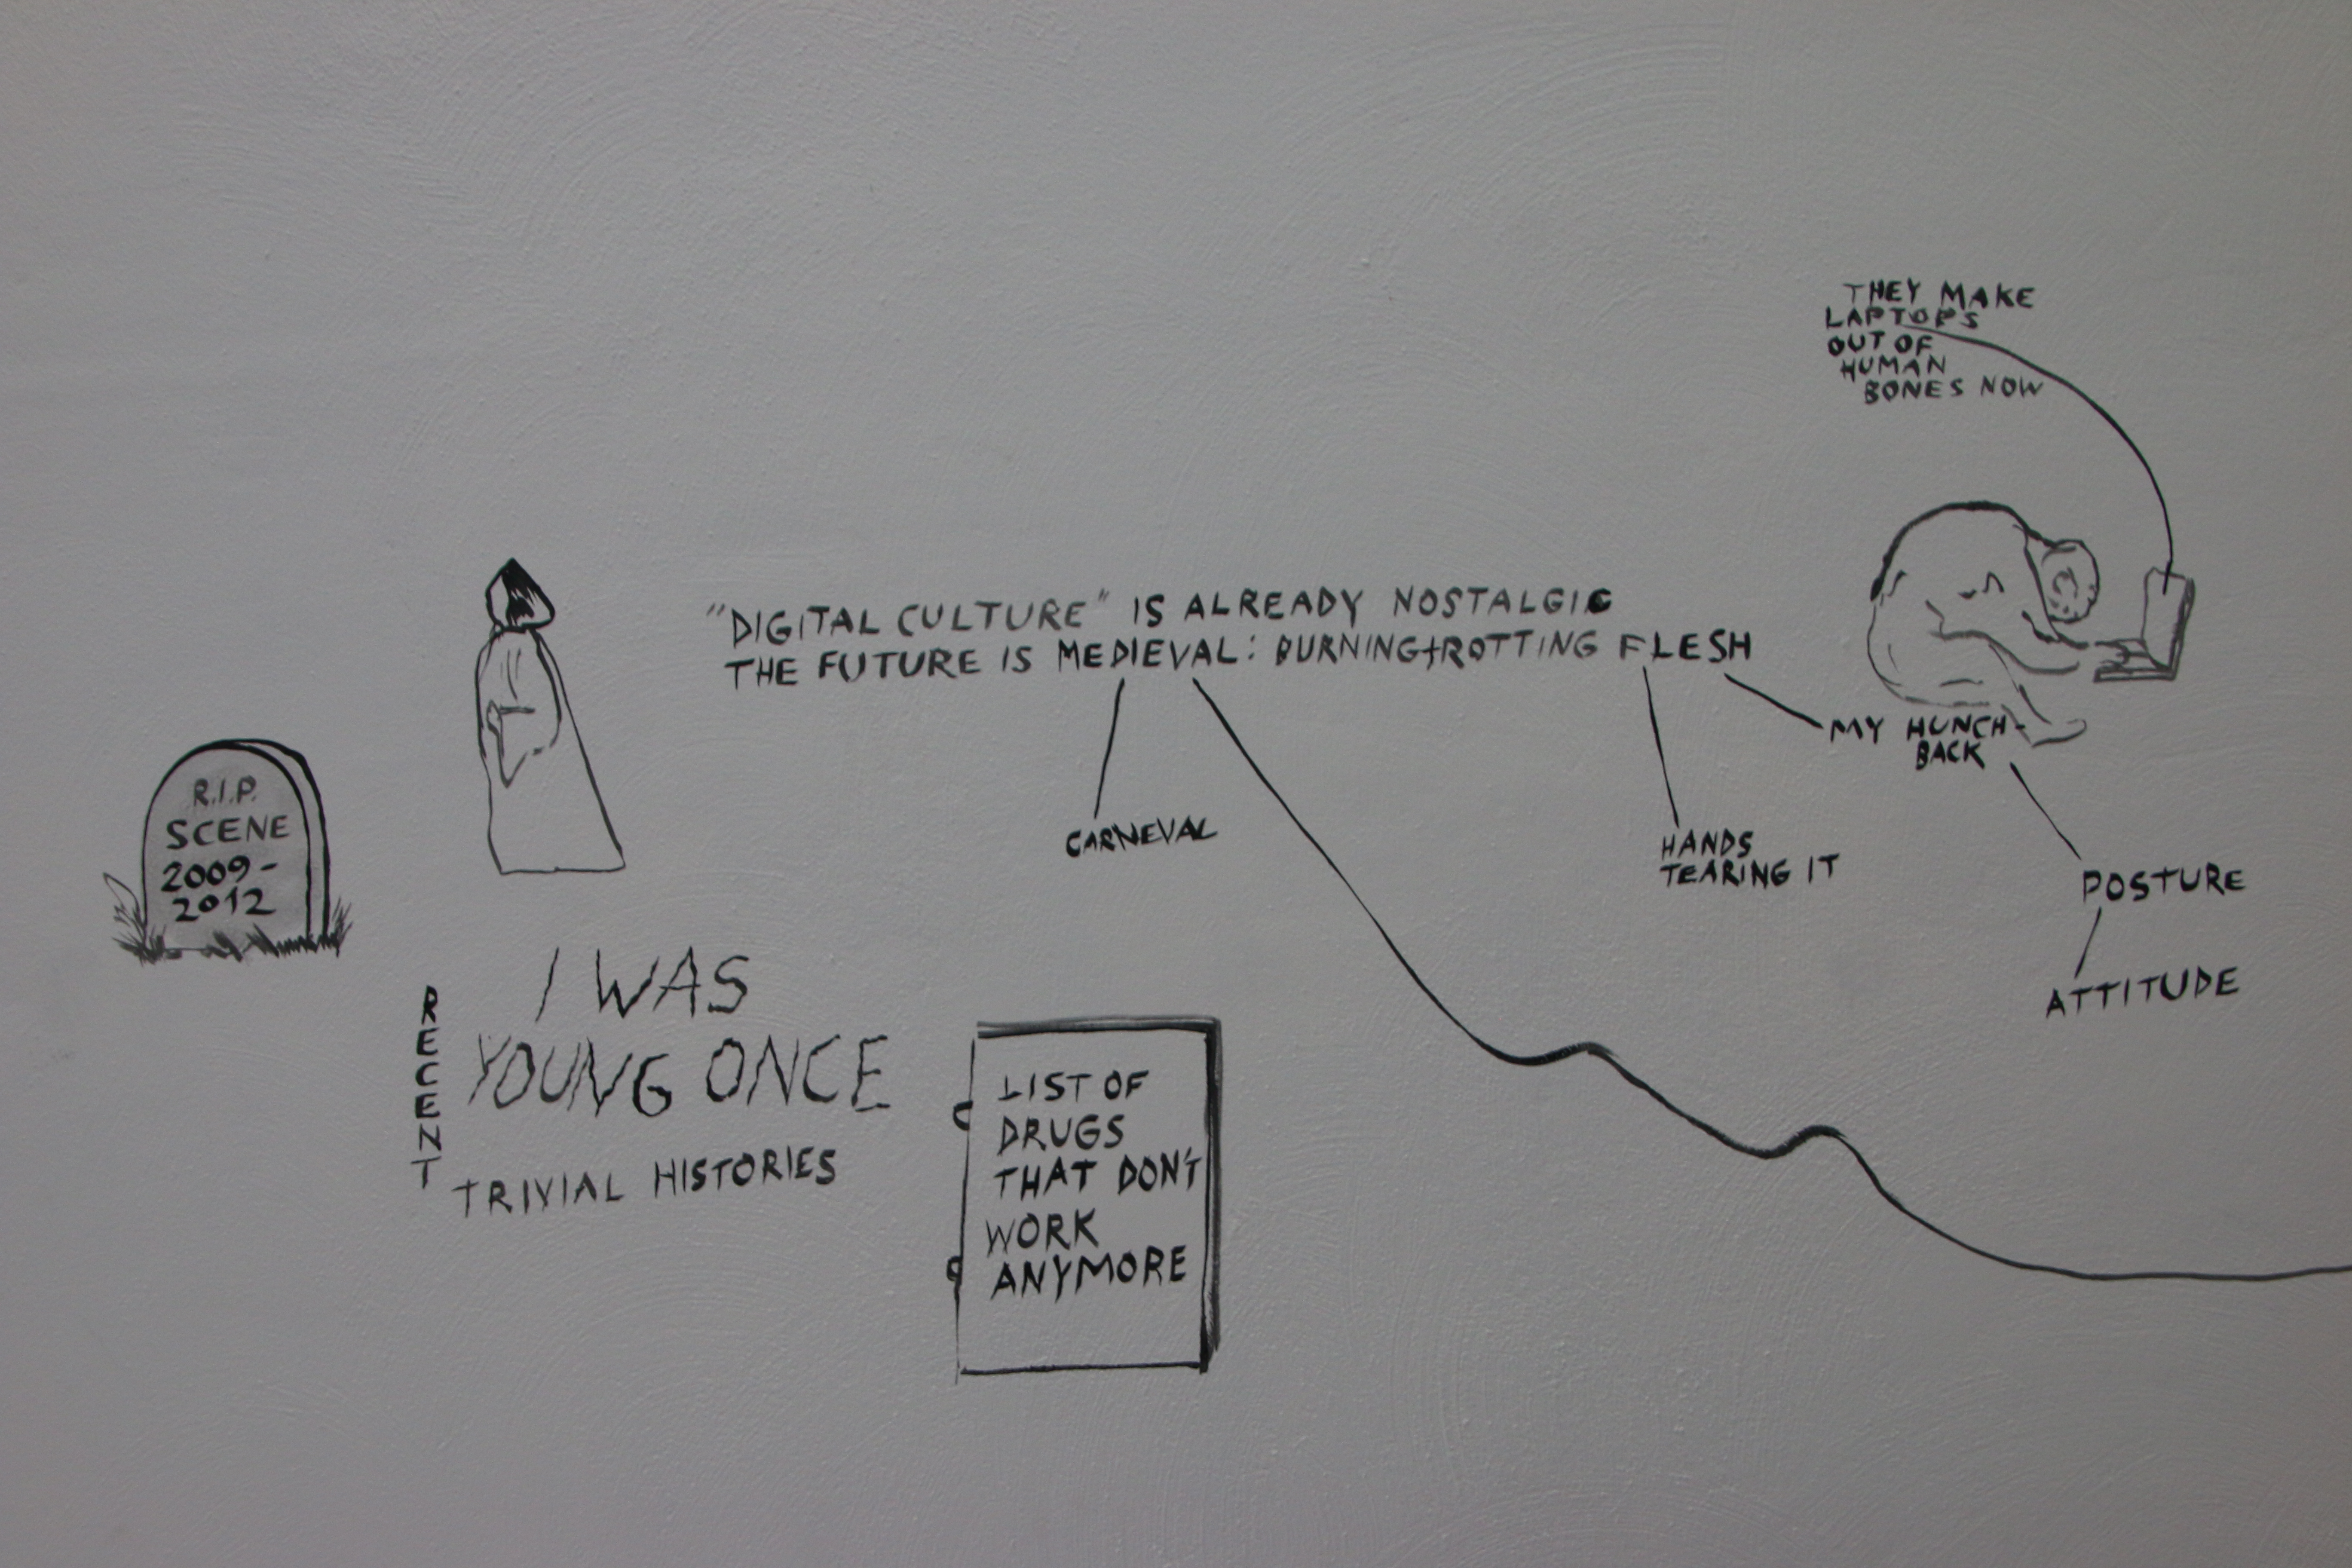 THEY MAKE
LAPTOPS
OUT OF
HUMAN
BONES NOW
"DIGITAL CULTURE" IS ALREADY NOSTALGIC
THE FUTURE IS MEDIEVAL: BURNING+ROTTING FLESH
MY HUNCH-
BACK
R.I.P.
SCENE
2009-
2012
CARNEVAL
HANDS
TEARING IT
POSTURE
ATTITUDE
RECENT
I WAS
YOUNG ONCE
TRIVIAL HISTORIES
LIST OF
DRUGS
THAT DON'T
WORK
ANYMORE